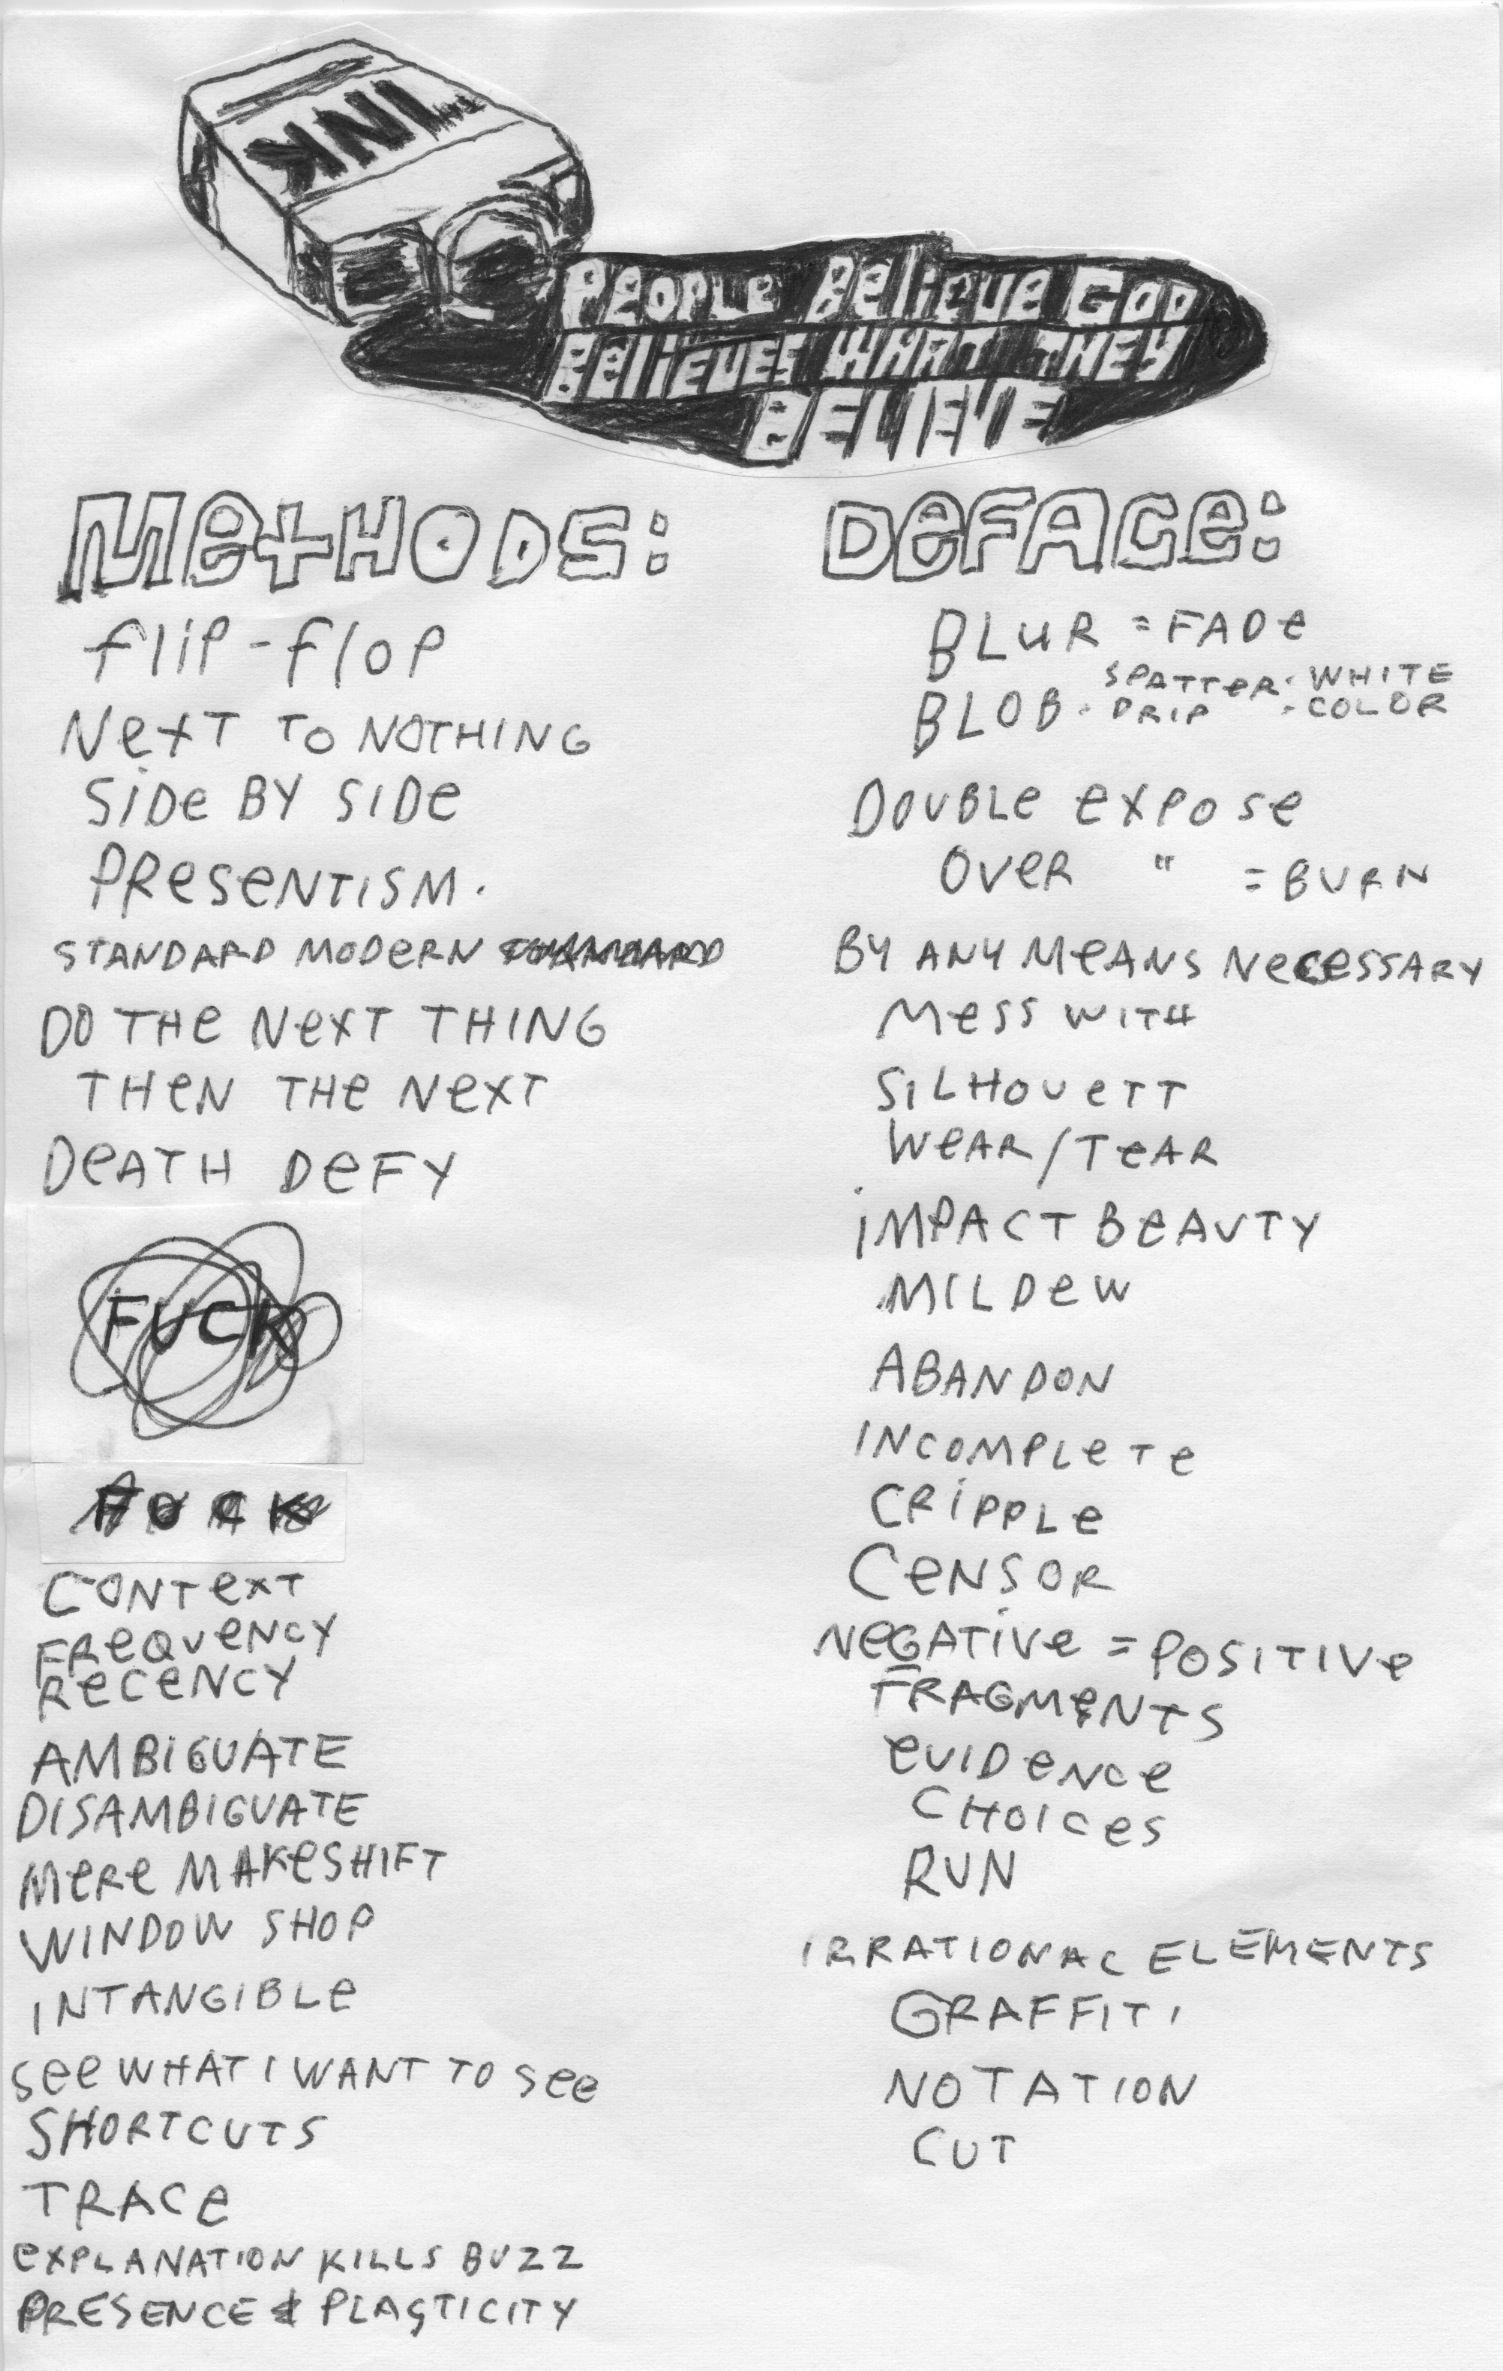 INK
PEOPLE BELIEVE GOD
BELIEVES WHAT THEY
BELIEVE
METHODS:
fLiP-fLOP
NeXT TO NOTHING
SiDe BY SIDe
PReSeNTISM.
STANDARD MODeRN
DO THe NeXT THING
THeN THe NeXT
DeATH DeFY
FUCK
FUCK
CONTeXT
FReQUeNCY
ReCeNCY
AMBiGUATE
DISAMBIGUATE
MeRe MAKeSHIFT
WINDOW SHOP
INTANGIBLe
See WHAT I WANT TO See
SHORTCUTS
TRACe
eXPLANATION KILLS BUZZ
PRESENCE & PLASTICITY
DeFACe:
BLUR = FADe
BLOB. SPATTeR. WHITE
DRIP . COLOR
DOUBLe eXPOSe
OVeR " = BURN
BY ANY MeANS NeCeSSARY
MeSS WITH
SiLHOUeTT
WeAR/TeAR
iMPACT BeAUTY
MILDeW
ABANDON
INCOMPLeTe
CRiPPLe
CeNSOR
NeGATiVe = POSITIVe
FRAGMeNTS
eVIDeNCe
CHOICeS
RUN
IRRATIONAL ELEMENTS
GRAFFITI
NOTATION
CUT